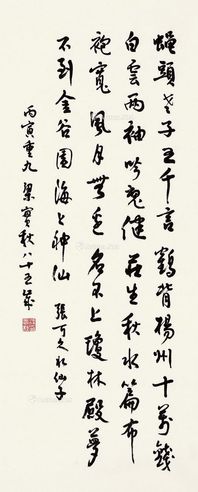 蠅頭老子五千言鶴背楊州十萬錢
白雲兩袖吟魂健莊生秋水篇布
袍寬風月無邊名不上瓊林殿夢
不到金谷園海上神仙 張可久水仙子
丙寅重九梁實秋八十五歲